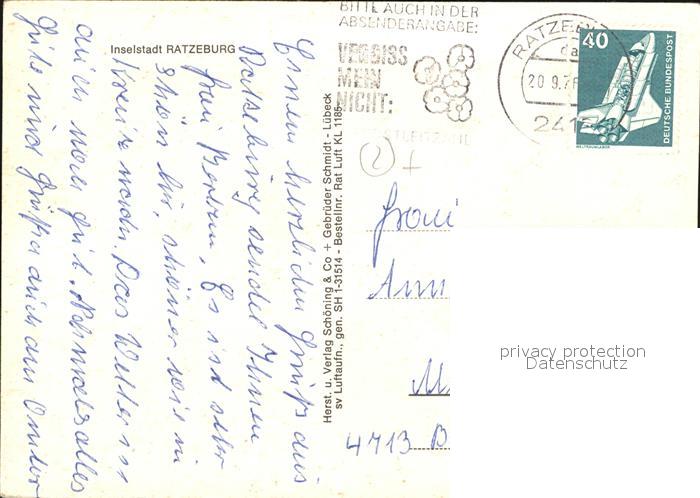 Inselstadt RATZEBURG
Einen herzlichen Gruß aus
Ratzeburg sendet Ihnen
Frau Bertram, Es ist sehr
schön hier, schöner wie in
Das Wetter ist
auch noch gut. Nochmals alles
Gute und Grüße auch an
Herst. u. Verlag Schöning & Co + Gebrüder Schmidt - Lübeck
sv Luftaufn., gen. SH 1-31514 - Bestellnr. Rat Luft KL 1185
BITTE AUCH IN DER
ABSENDERANGABE:
VERGISS
MEIN
NICHT:
POSTLEITZAHL
RATZEBU
da
20.9.76
241
40
DEUTSCHE BUNDESPOST
WELTRAUMLABOR
2
Frau
Ann
M
4713 B
privacy protection
Datenschutz